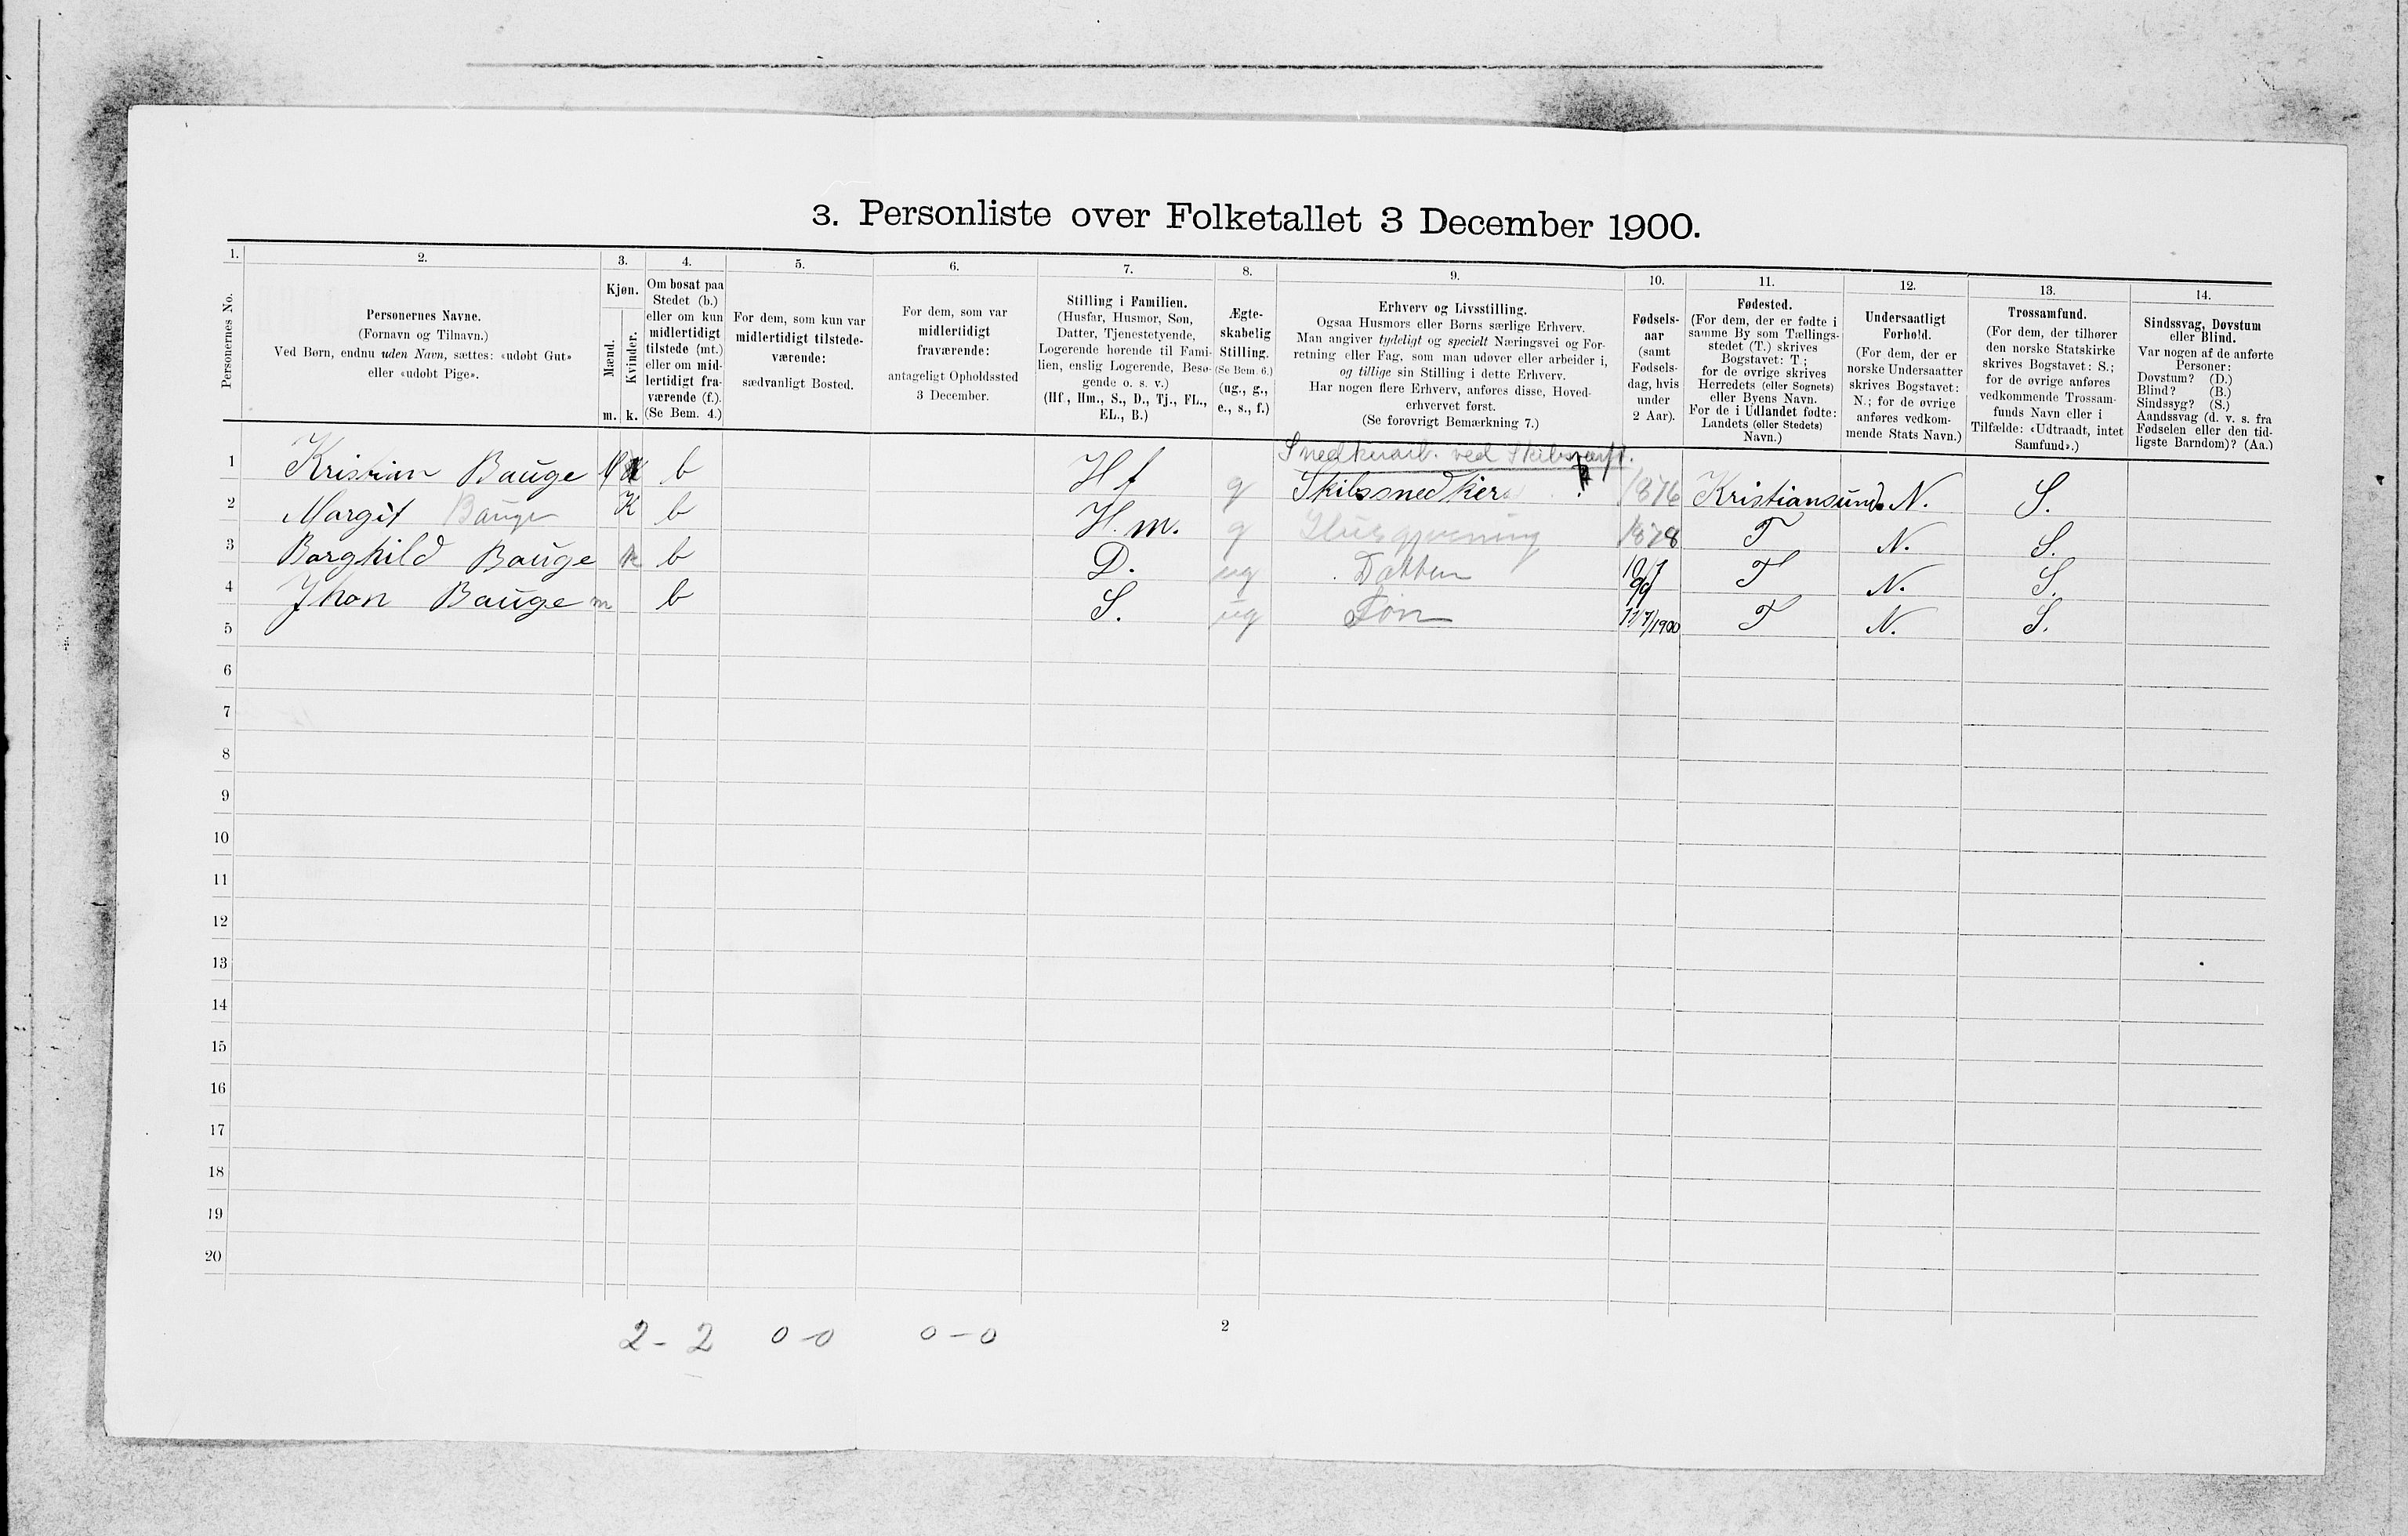 3. Personliste over Folketallet 3 December 1900.
1. 2. 3. 4. 5. 6. 7. 8. 9. 10. 11. 12. 13. 14.
Personernes No.
Personernes Navne.
(Fornavn og Tilnavn.)
Ved Børn, endnu uden Navn, sættes: «udøbt Gut»
eller «udøbt Pige».
Kjøn.
Mænd.
m.
Kvinder.
k.
Om bosat paa
Stedet (b.)
eller om kun
midlertidigt
tilstede (mt.)
eller om mid-
lertidigt fra-
værende (f.).
(Se Bem. 4.)
For dem, som kun var
midlertidigt tilstede-
værende:
sædvanligt Bosted.
For dem, som var
midlertidigt
fraværende:
antageligt Opholdssted
3 December.
Stilling i Familien.
(Husfar, Husmor, Søn,
Datter, Tjenestetyende,
Logerende hørende til Fami-
lien, enslig Logerende, Besø-
gende o. s. v.)
(Hf., Hm., S., D., Tj., FL.,
EL., B.)
Ægte-
skabelig
Stilling.
(Se Bem. 6.)
(ug., g.,
e., s., f.)
Erhverv og Livsstilling.
Ogsaa Husmors eller Børns særlige Erhverv.
Man angiver tydeligt og specielt Næringsvei og For-
retning eller Fag, som man udøver eller arbeider i,
og tillige sin Stilling i dette Erhverv.
Har nogen flere Erhverv, anføres disse, Hoved-
erhvervet først.
(Se forøvrigt Bemærkning 7.)
Fødsels-
aar
(samt
Fødsels-
dag, hvis
under
2 Aar).
Fødested.
(For dem, der er fødte i
samme By som Tællings-
stedet (T.) skrives
Bogstavet: T;
for de øvrige skrives
Herredets (eller Sognets)
eller Byens Navn.
For de i Udlandet fødte:
Landets (eller Stedets)
Navn.)
Undersaatligt
Forhold.
(For dem, der er
norske Undersaatter
skrives Bogstavet:
N.; for de øvrige
anføres vedkom-
mende Stats Navn.)
Trossamfund.
(For dem, der tilhører
den norske Statskirke
skrives Bogstavet: S.;
for de øvrige anføres
vedkommende Trossam-
funds Navn eller i
Tilfælde: «Udtraadt, intet
Samfund».)
Sindssvag, Døvstum
eller Blind.
Var nogen af de anførte
Personer:
Døvstum? (D.)
Blind? (B.)
Sindssyg? (S.)
Aandssvag (d. v. s. fra
Fødselen eller den tid-
ligste Barndom)? (Aa.)
ved Skibsværft.
1 Kristian Bauge b Hf g Skibssnedker 1876 Kristiansund N. S.
2 Margit Bauge K b H.m. g Husgjerning 1878 T N. S.
3 Borghild Bauge k b D. ug Datter T N. S.
4 Jhon Bauge m b S. ug Søn 11/7/1900 T N. S.
5
6
7
8
9
10
11
12
13
14
15
16
17
18
19
20
2 - 2 0 - 0 0 - 0 2